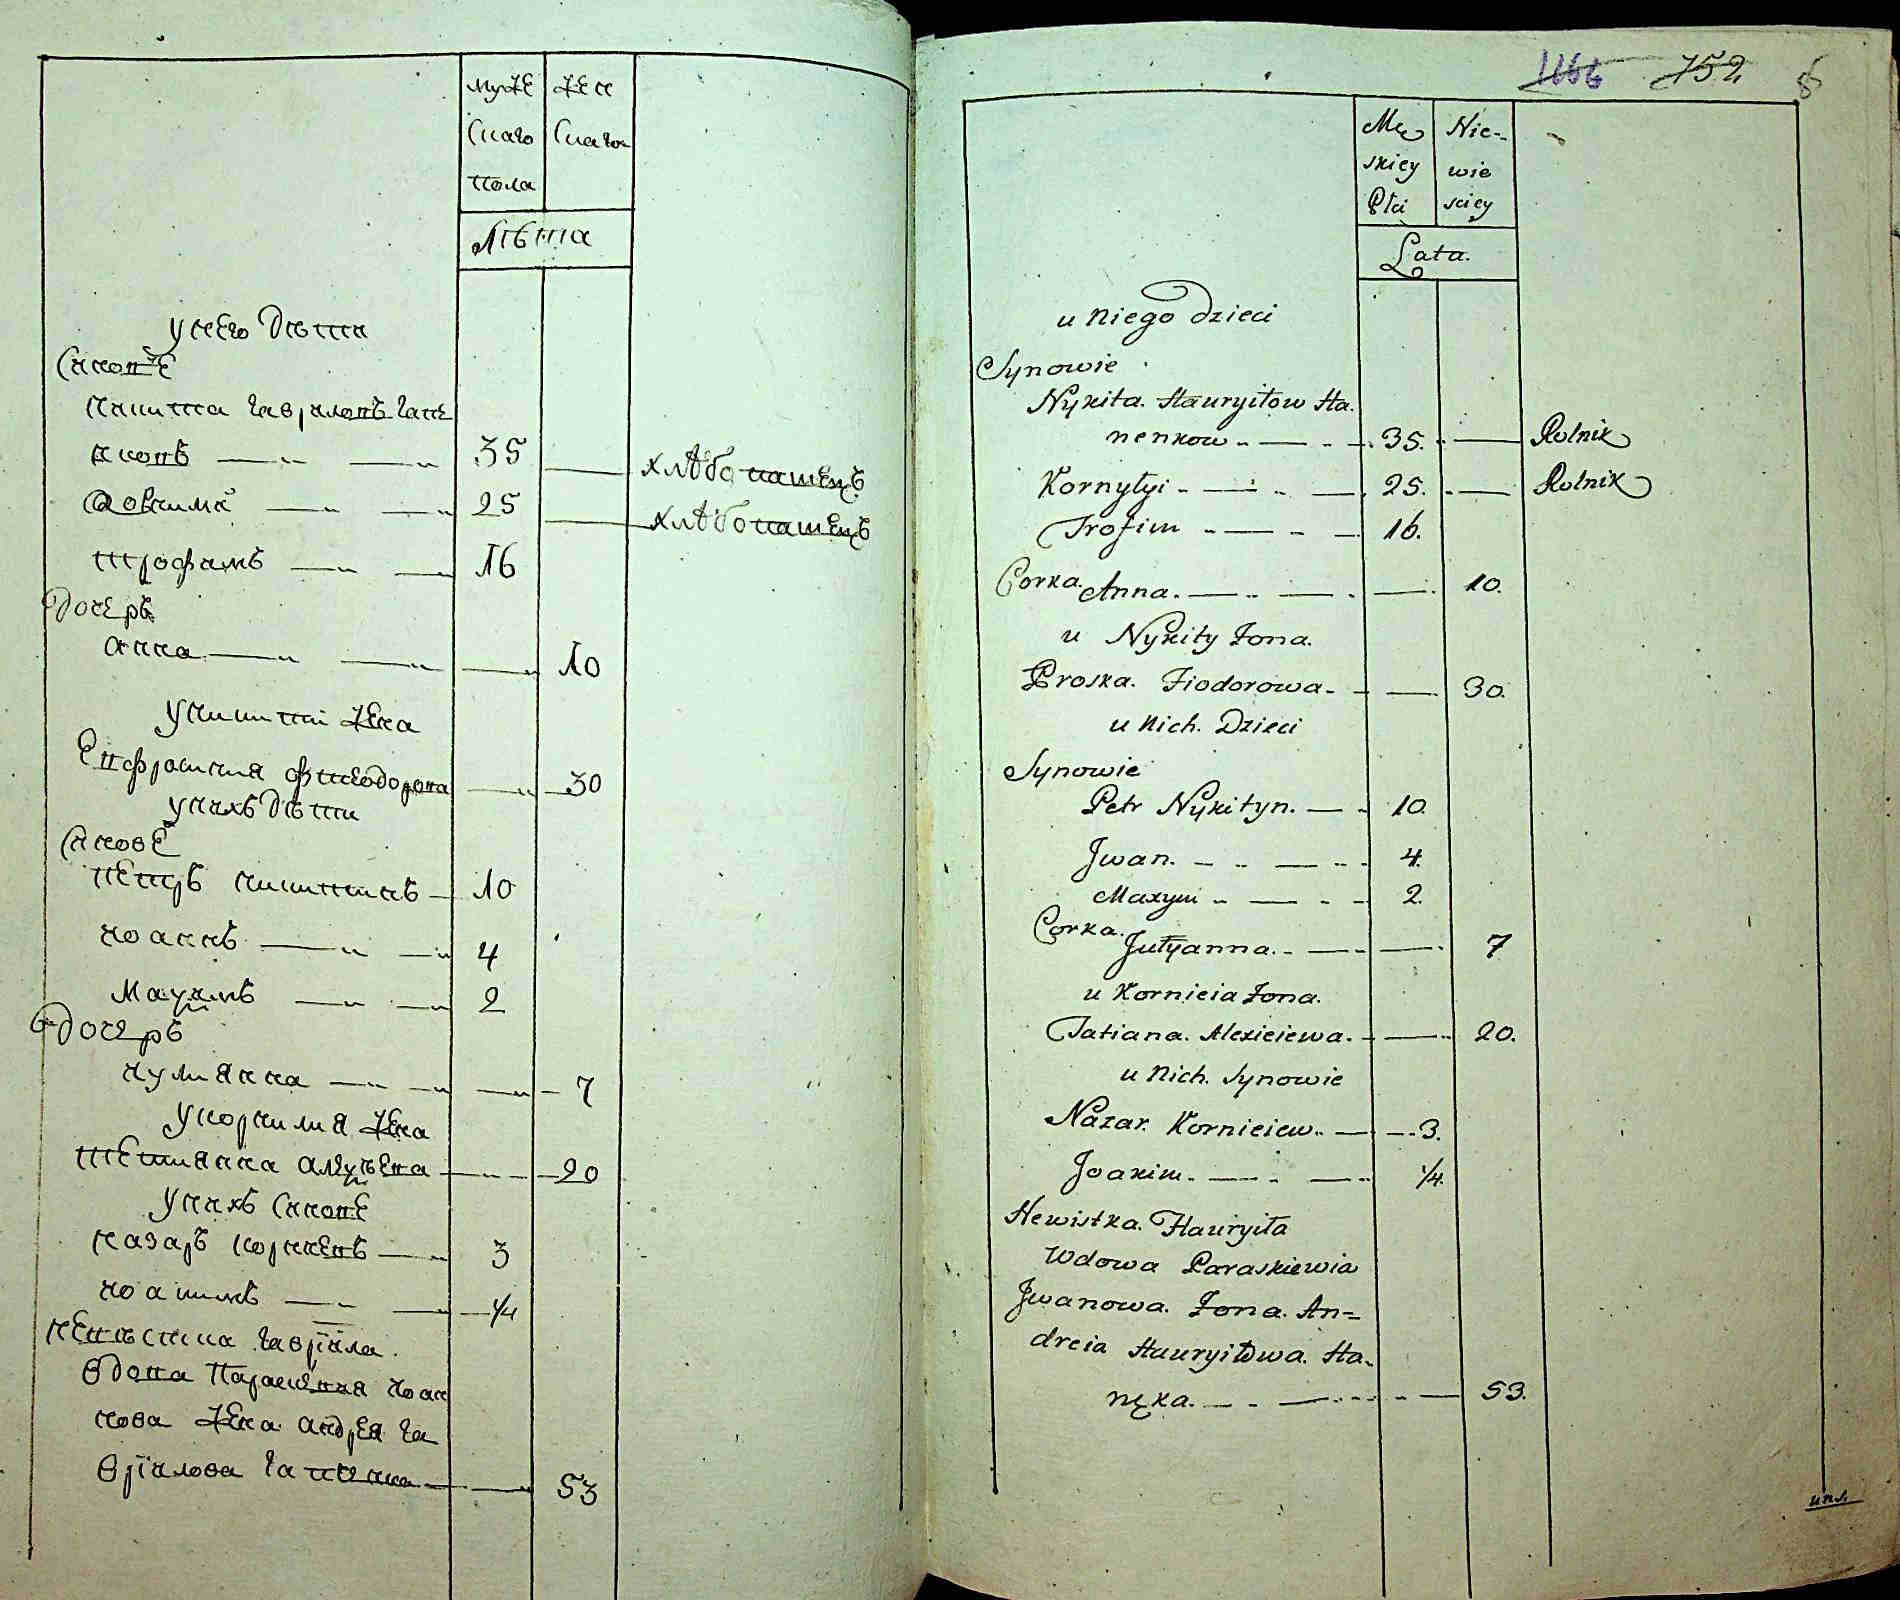 муже
скаго
пола
жен
скаго
лѣта
у него дѣти
Сыновѣ
никита гавриловъ ган
35
хлѣбопашецъ
25
хлѣбопашецъ
трофимъ 16
дочерь
анна 10
у никиты жена
Епфросиния фтеодорова 30
у нихъ дѣти
Сыновѣ
петръ никитинъ 10
иоаннъ 4
Маѯимъ 2
дочерь
иулиянна 7
у корнилия жена
татиянна алеѯѣева 20
у нихъ Сыновѣ
назаръ корниевъ 3
иоакимъ 1/4
невѣстка гавріила
вдова Параскевия иоан
нова жена андрея га
вріилова 53
1166 752 6
Mę
skiey
Płci
Nie-
wie
sciey
Lata.
u Niego Dzieci
Synowie
Nykita. Hauryiłow Ha.
nenkow 35. Rolnik
Kornyłyi 25. Rolnik
Trofim 16.
Corka. Anna. 10.
u Nykity Zona.
Proska. Fiodorowa 30.
u Nich. Dzieci
Synowie
Petr Nykityn. 10.
Jwan. 4.
Maxym 2.
Corka.
Jułyanna. 7
u Kornieia Zona.
Tatiana. Alexieiewa. 20.
u Nich. Synowie
Nazar. Kornieiew. 3.
Joakim. 1/4.
Newistka. Hauryiła
Wdowa Paraskiewia
Jwanowa. Zona. An=
dreia Hauryiłowa. Ha.
nęka. 53.